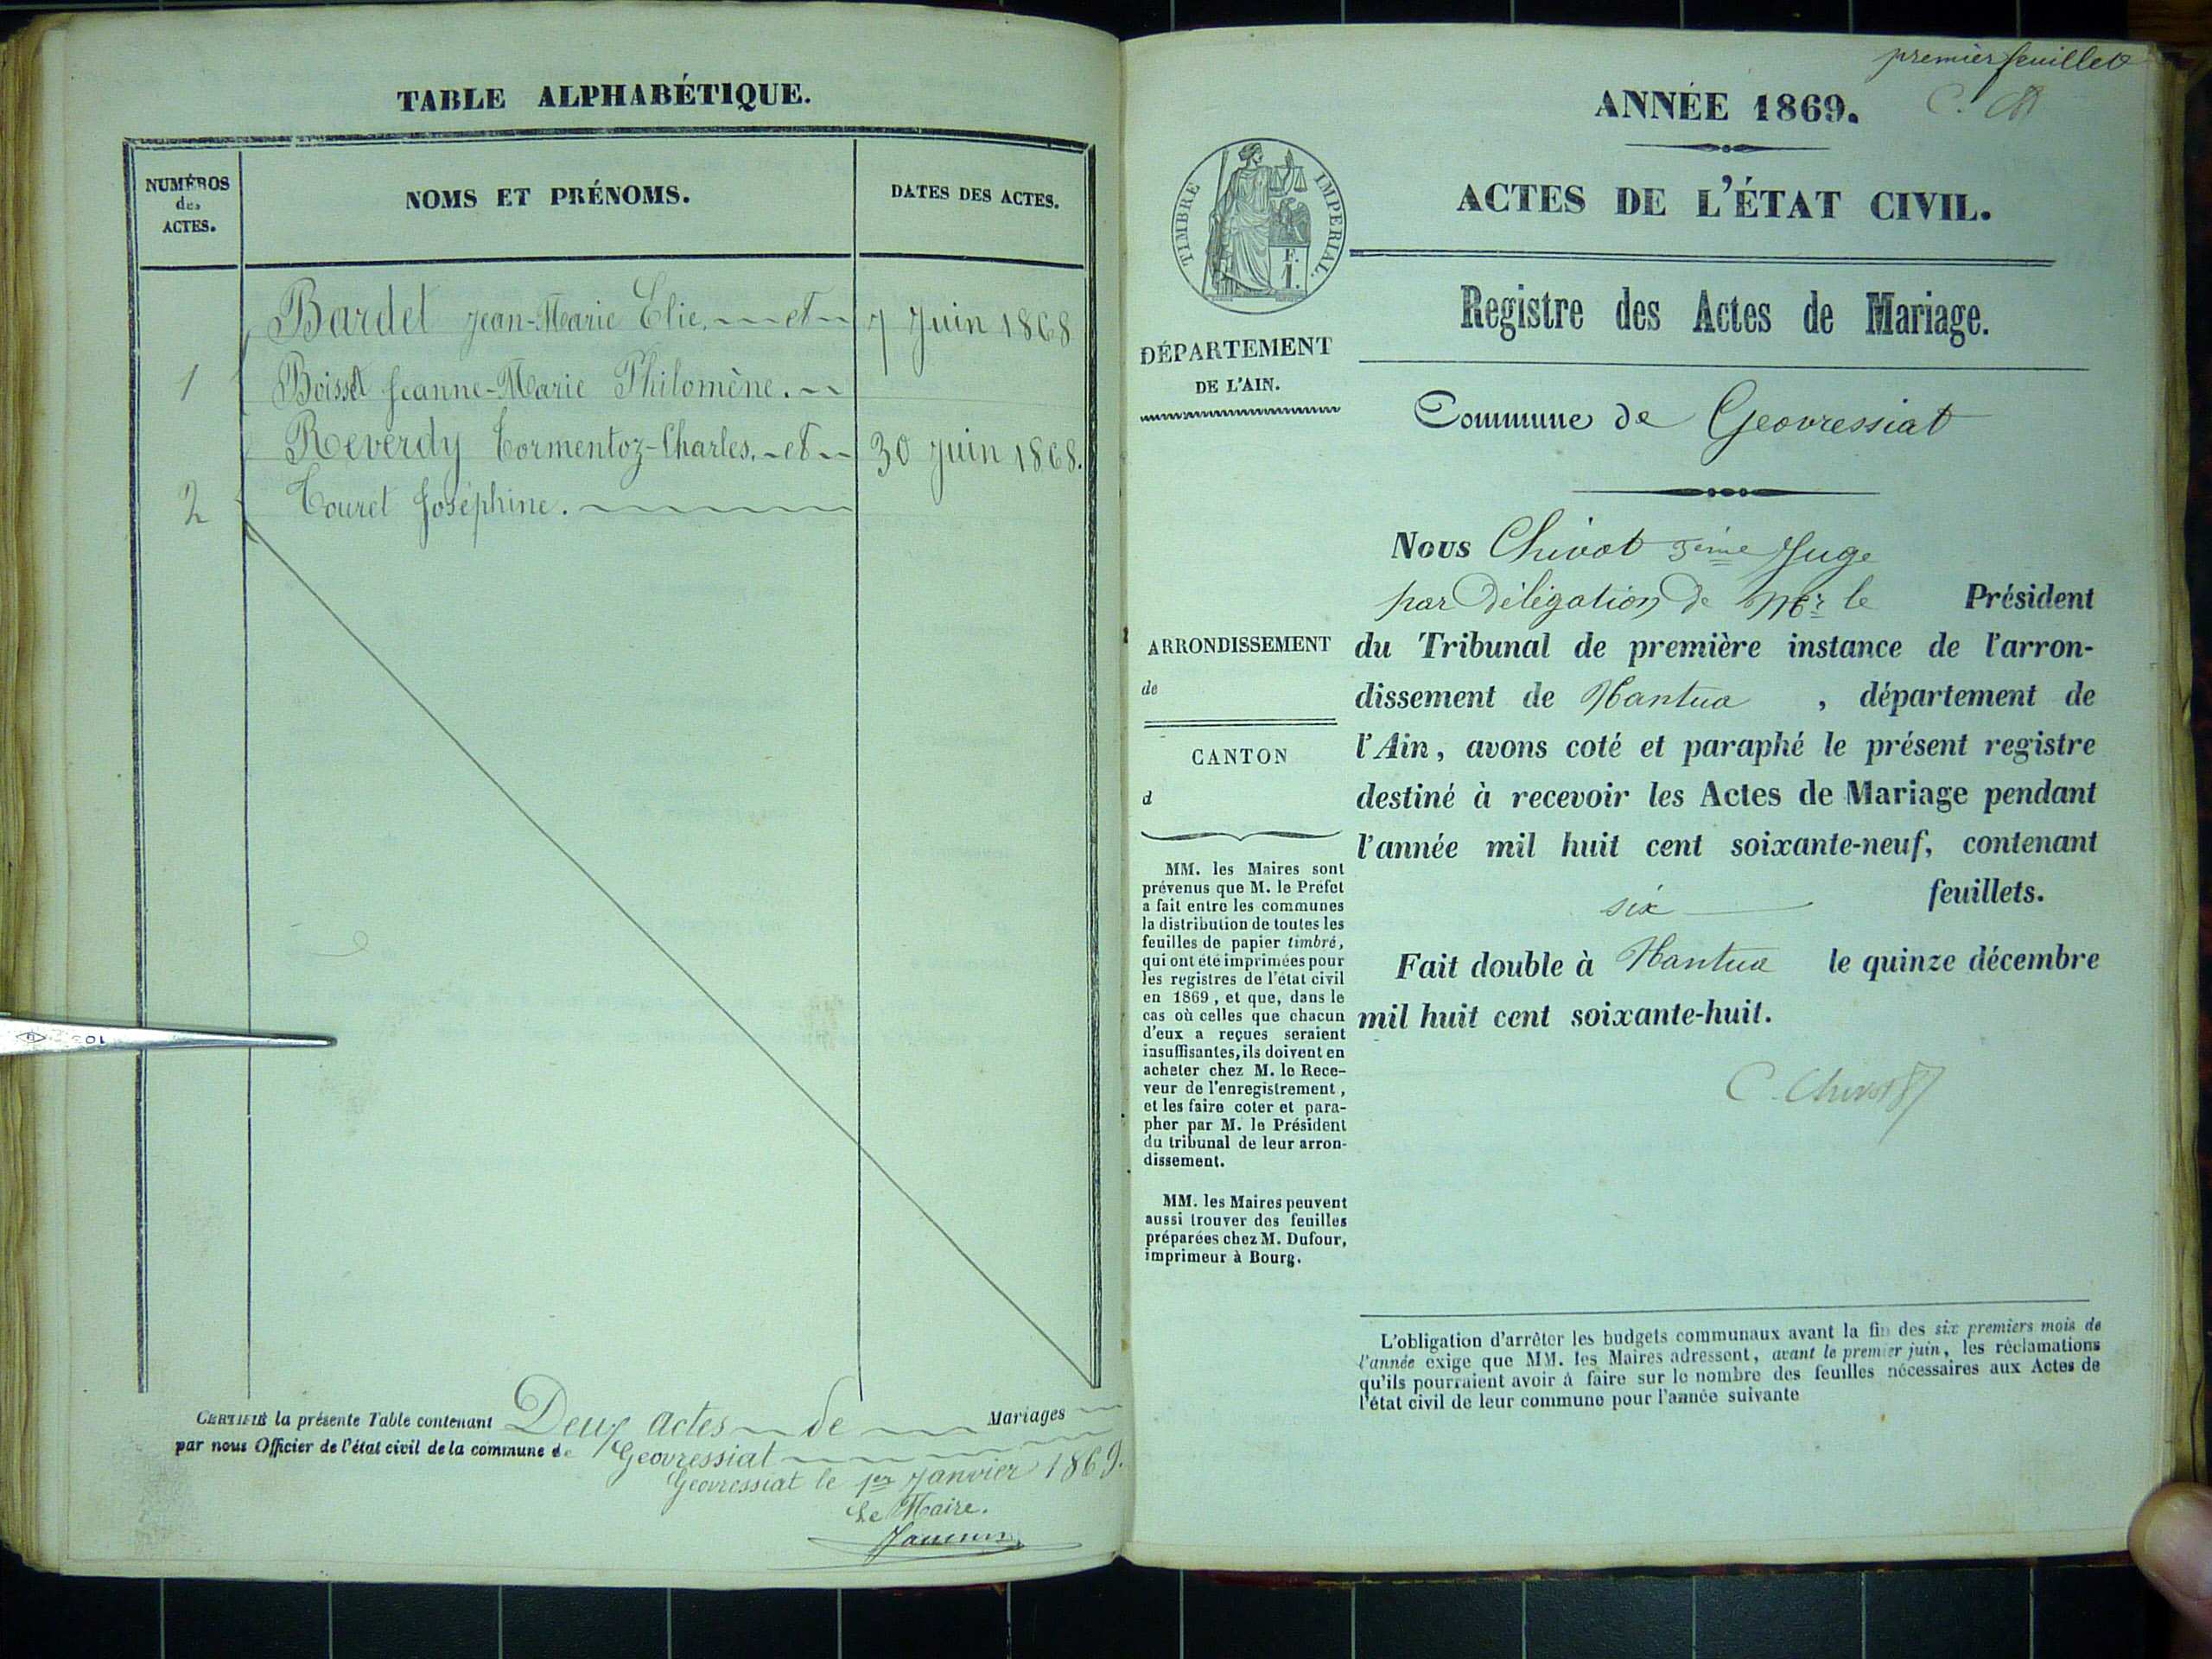 TABLE ALPHABÉTIQUE.
NUMÉROS
des
ACTES.
NOMS ET PRÉNOMS.
DATES DES ACTES.
Bardet Jean-Marie Elie, et 7 Juin 1868
1 Boisset Jeanne-Marie Philomène.
Reverdy Tormentoz-Charles, et 30 Juin 1868.
2 Touret Joséphine.
CERTIFIÉ la présente Table contenant Deux actes de Mariages
par nous Officier de l'état civil de la commune de Geovressiat
Geovressiat le 1er Janvier 1869.
Le Maire.
premier feuillet
ANNÉE 1869.
ACTES DE L'ÉTAT CIVIL.
TIMBRE IMPERIAL.
F.
1.
Registre des Actes de Mariage.
DÉPARTEMENT
DE L'AIN.
Commune de Geovressiat
Nous Chivot Juge
par Délégation de Mr le Président
du Tribunal de première instance de l'arron-
dissement de Nantua, département de
l'Ain, avons coté et paraphé le présent registre
destiné à recevoir les Actes de Mariage pendant
l'année mil huit cent soixante-neuf, contenant
six feuillets.
Fait double à Nantua le quinze décembre
mil huit cent soixante-huit.
C. Chivot
ARRONDISSEMENT
de
CANTON
d
MM. les Maires sont
prévenus que M. le Préfet
a fait entre les communes
la distribution de toutes les
feuilles de papier timbré,
qui ont été imprimées pour
les registres de l'état civil
en 1869, et que, dans le
cas où celles que chacun
d'eux a reçues seraient
insuffisantes, ils doivent en
acheter chez M. le Rece-
veur de l'enregistrement,
et les faire coter et para-
pher par M. le Président
du tribunal de leur arron-
dissement.
MM. les Maires peuvent
aussi trouver des feuilles
préparées chez M. Dufour,
imprimeur à Bourg.
L'obligation d'arrêter les budgets communaux avant la fin des six premiers mois de
l'année exige que MM. les Maires adressent, avant le premier juin, les réclamations
qu'ils pourraient avoir à faire sur le nombre des feuilles nécessaires aux Actes de
l'état civil de leur commune pour l'année suivante